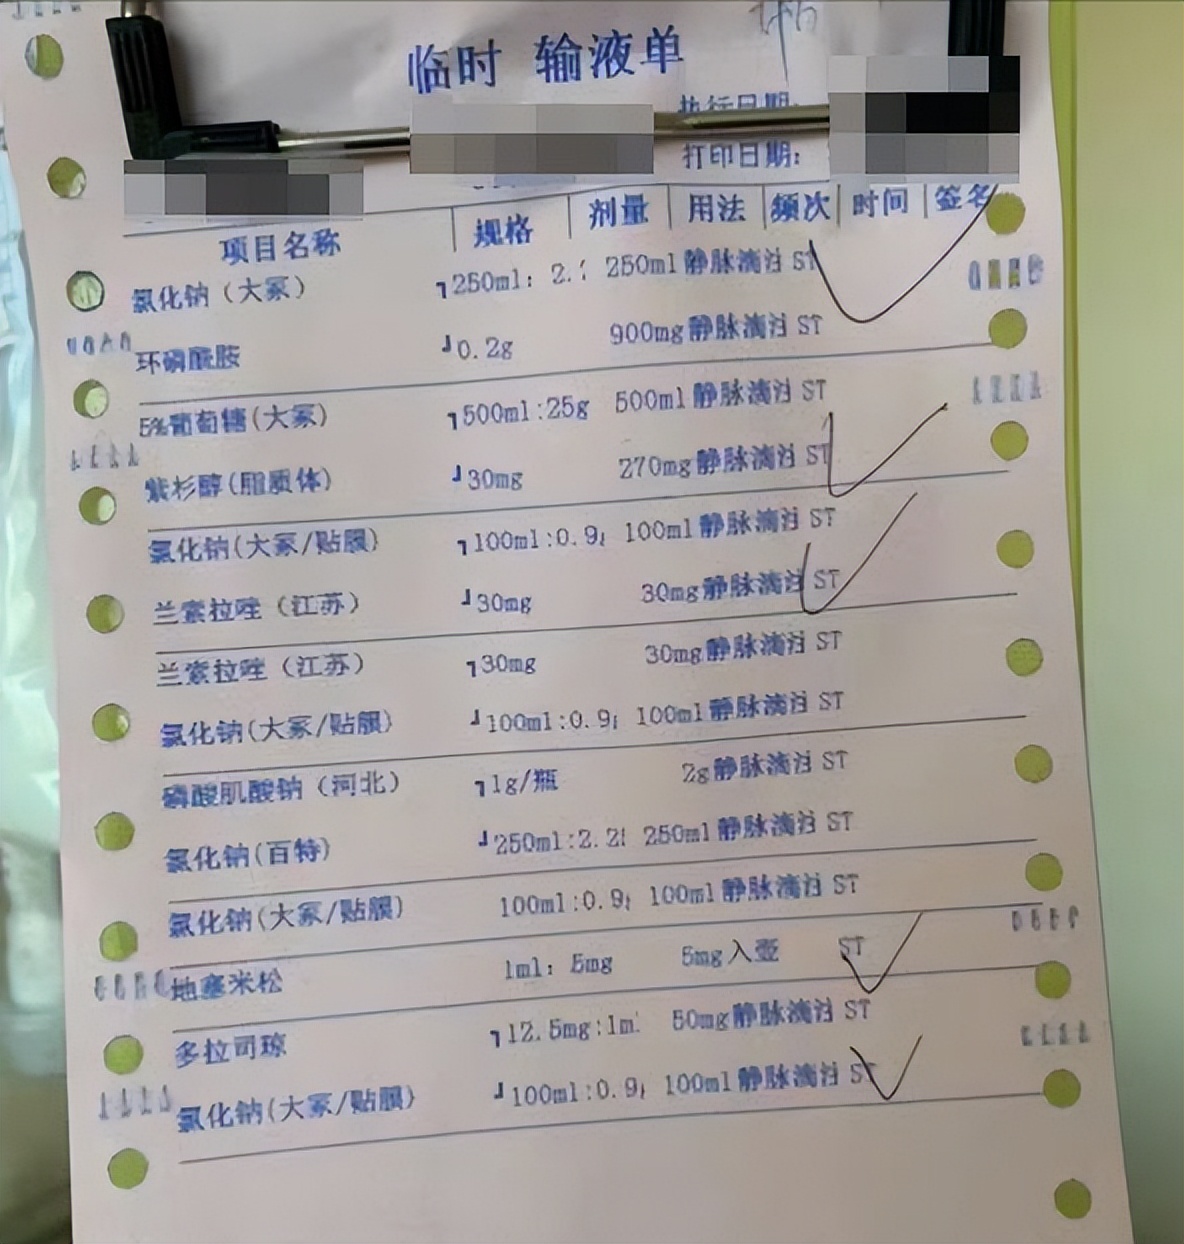 临时 输液单
执行日期:
打印日期:
项目名称 规格 剂量 用法 频次 时间 签名
氯化钠（大冢） ┓250ml: 2.2 250ml 静脉滴注 ST
环磷酰胺 ┛0.2g 900mg 静脉滴注 ST
5%葡萄糖(大冢) ┓500ml:25g 500ml 静脉滴注 ST
紫杉醇(脂质体) ┛30mg 270mg 静脉滴注 ST
氯化钠(大冢/贴膜) ┓100ml:0.9 100ml 静脉滴注 ST
兰索拉唑（江苏） ┛30mg 30mg 静脉滴注 ST
兰索拉唑（江苏） ┓30mg 30mg 静脉滴注 ST
氯化钠(大冢/贴膜) ┛100ml:0.9 100ml 静脉滴注 ST
磷酸肌酸钠（河北） ┓1g/瓶 2g 静脉滴注 ST
氯化钠(百特) ┛250ml:2.2 250ml 静脉滴注 ST
氯化钠(大冢/贴膜) 100ml:0.9 100ml 静脉滴注 ST
地塞米松 1ml: 5mg 5mg 入壶 ST
多拉司琼 ┓12.5mg:1m 50mg 静脉滴注 ST
氯化钠(大冢/贴膜) ┛100ml:0.9 100ml 静脉滴注 ST